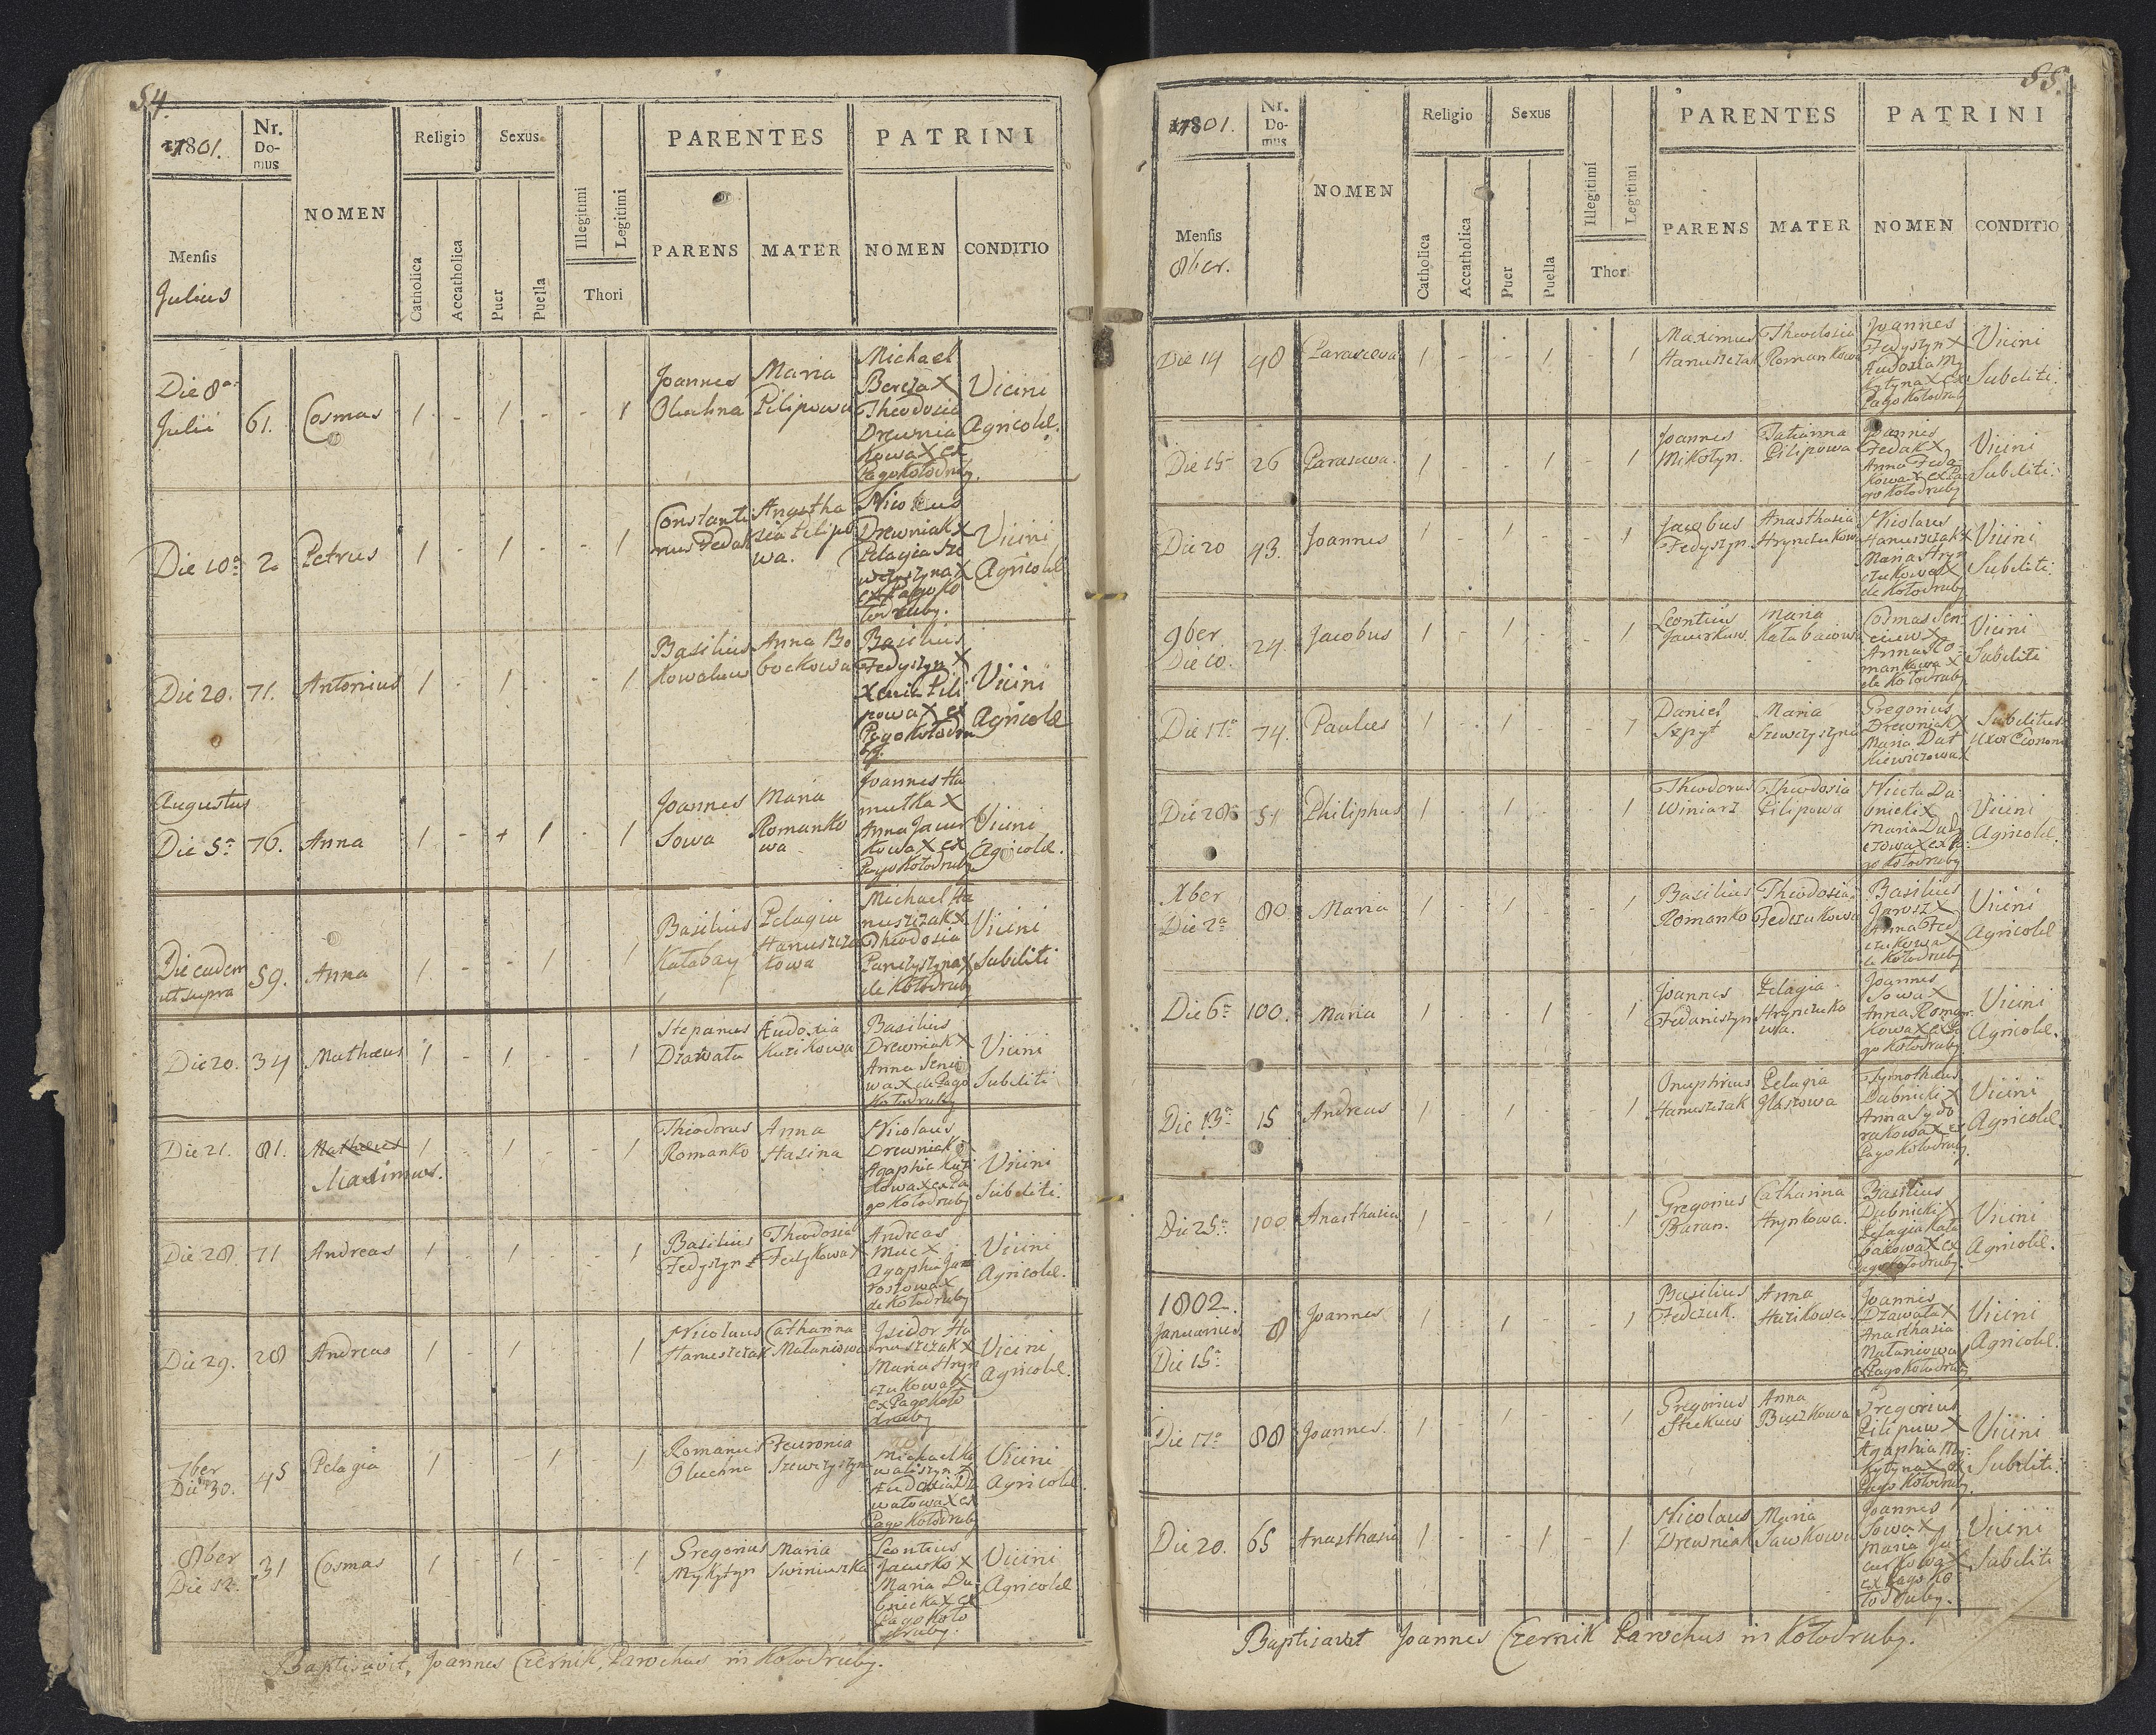 54.
1801.
Nr. Do-mus
NOMEN
Religio
Sexus
Illegitimi
Legitimi
PARENTES
PATRINI
Mensis
Julius
Catholica
Accatholica
Puer
Puella
Thori
PARENS
MATER
NOMEN
CONDITIO
Die 8a Julii 61. Cosmas 1 - 1 - - 1
Joannes Oluchna
Maria Pilipowa
Michael
Bereza X
Theodosia
Drewnia
kowa X ex
Pago Kołodruby.
Vicini
Agricolæ.
Die 10a 2 Petrus 1 - 1 - - 1
Constanti
nus Fedak
Vicini
Agricolæ
Drewniak X
Pelagia Sze
wczyszyna X
ex Pago Ko
łodruby.
Die 20. 71. Antonius 1 - 1 - - 1
Basilius
Kowaluw
Anna Bo
bockowa
Basilius
Fedyszyn X
Xenia Pili
powa X ex
Pago Kołodru
by.
Vicini
Agricolæ
Augustus
Die 5a 76. Anna 1 - + 1 - 1
Joannes
Sowa
Maria
Romanko
wa
Joannes Ha
mutka X
Anna Jawor
kowa X ex
Pago Kołodruby
Vicini
Agricolæ.
Die eadem
ut supra
59. Anna 1 - - 1 - 1
Basilius
Kałabay
Pelagia
Hanuszcza
kowa
Michael Ha
nuszczak X
Theodosia
Panczyszyna X
de Kołodruby
Vicini
Subditi
Die 20. 34 Mathæus 1 - 1 - - 1
Stepanus
Dzawała
Eudoxia
Kuzikowa
Basilius
Drewniak X
Anna Seniu
wa X de Pago
Kołodruby
Vicini
Subditi
Die 21. 81. Mathæus
Maximus.
1 - 1 - - 1
Theodorus
Romanko
Anna
Hasina
Nicolaus
Drewniak X
Agaphia Kuzi
kowa X ex Pa
go Kołodruby
Vicini
Subditi.
Die 28. 71 Andreas 1 - 1 - - 1
Basilius
Fedyszyn
Theodosia
Fedykowa
Andreas
Muc X
Agaphia Jaro
roszowa X
de Kołodruby
Vicini
Agricolæ.
Die 29. 28 Andreas 1 - 1 - - 1
Nicolaus
Hanuszczak
Catharina
Małaniowa
Isidor Ha
nuszczak X
Maria Hryn
czukowa X
ex Pago Koło
druby
Vicini
Agricolæ.
7ber
Die 30. 45 Pelagia 1 - - 1 - 1
Romanus
Oluchna
Feuronia
Szewczyszyn
Michael Ko
waliszyn X
Eudoxia Dza
wałowa X ex
Pago Kołodruby
Vicini
Agricolæ
8ber
Die 12. 31 Cosmas 1 - 1 - - 1
Gregorius
Mykytyn
Maria
Swiniuszka
Leontius
Jaworko X
Maria Du
bnicka X ex
Pago Koło
druby.
Vicini
Agricolæ
Baptisavit, Joannes Czernik, Parochus in Kołodruby.
55.
1801.
Nr. Do-mus
NOMEN
Religio
Sexus
Illegitimi
Legitimi
PARENTES
PATRINI
Mensis
8ber.
Catholica
Accatholica
Puer
Puella
Thori
PARENS
MATER
NOMEN
CONDITIO
Die 14 40 Parasceva 1 - - 1 - 1
Maximus
Hanuszczak
Theodosia
Romankowa
Joannes
Fedyszyn X
Eudoxia My
kytyna X ex
Pago Kołodruby
Vicini
Subditi.
Die 15a 26 Parasceva. 1 - - 1 - 1
Joannes
Mikołyn.
Tatianna
Pilipowa
Joannes
Fedak X
Anna Feda
kowa X ex Pa
go Kołodruby
Vicini
Subditi.
Die 20 43. Joannes 1 - 1 - - 1
Jacobus
Fedyszyn.
Anasthasia
Hrynczukowa
Nicolaus
Hanuszczak X
Maria Hryn
czukowa X
de Kołodruby
Vicini
Subditi.
9ber
Die 10. 24. Jacobus 1 - 1 - - 1
Leontius
Jaworkuw.
Maria
Kałabaiowa
Cosmas Sen
ciuw X
Anna Ro
mankowa X
de Kołodruby
Vicini
Subditi
Die 17a 74. Paulus 1 - 1 - - 1
Daniel
Szpyt
Maria
Szewczyszyna
Gregorius
Drewniak X
Maria Dat
kiewiczowa X
Subditus
Uxor Œconomi
Die 28 51 Philiphus 1 - 1 - - 1
Theodorus
Winiarz
Theodosia
Pilipowa
Niceta Du
bnicki X
Vicini
Agricolæ.
go Kołodruby
Xber
Die 2a 80. Maria 1 - - 1 - 1
Basilius
Romanko
Theodosia
Fedczukowa
Basilius
Jarosz X
Anna Fed
czukowa X
de Kołodruby
Vicini
Agricolæ
Die 6a 100. Maria 1 - - 1 - 1
Joannes
Fedaniszyn
Pelagia
Hrynczuko
wa.
Joannes
Sowa X
Anna Roman
kowa X ex Pa
go Kołodruby
Vicini
Agricolæ.
Die 13a 15 Andreas 1 - 1 - - 1
Onuphrius
Hanuszczak
Pelagia
Hlasowa
Tymotheus
Dubnicki X
Anna Sydo
rukowa X ex
Pago Kołodruby.
Vicini
Agricolæ.
Die 25a 100. Anasthasia 1 - - 1 - 1
Gregorius
Baran.
Catharina
Hrynkowa.
Basilius
Dubnicki X
Pelagia Kała
baikowa X ex
Pago Kołodruby.
Vicini
Agricolæ.
1802.
Januarius
Die 15a 8 Joannes 1 - 1 - - 1
Basilius
Fedczuk.
Anna
Huzikowa
Joannes
Dzawała X
Anasthasia
Małaniowa X
ex Pago Kołodruby
Vicini
Agricolæ.
Die 17a 88 Joannes. 1 - 1 - - 1
Gregorius
Stekuw
Anna
Buczkowa
Gregorius
Pilipuw X
Agaphia My
kytyna X ex
Pago Kołodruby.
Vicini
Subditi.
Die 20. 65 Anasthasia 1 - - 1 - 1
Nicolaus
Drewniak
Maria
Sawkowa
Joannes
Sowa X
Maria Ja
curkowa X
ex Pago Ko
łodruby.
Vicini
Subditi
Baptisavit Joannes Czernik Parochus in Kołodruby.